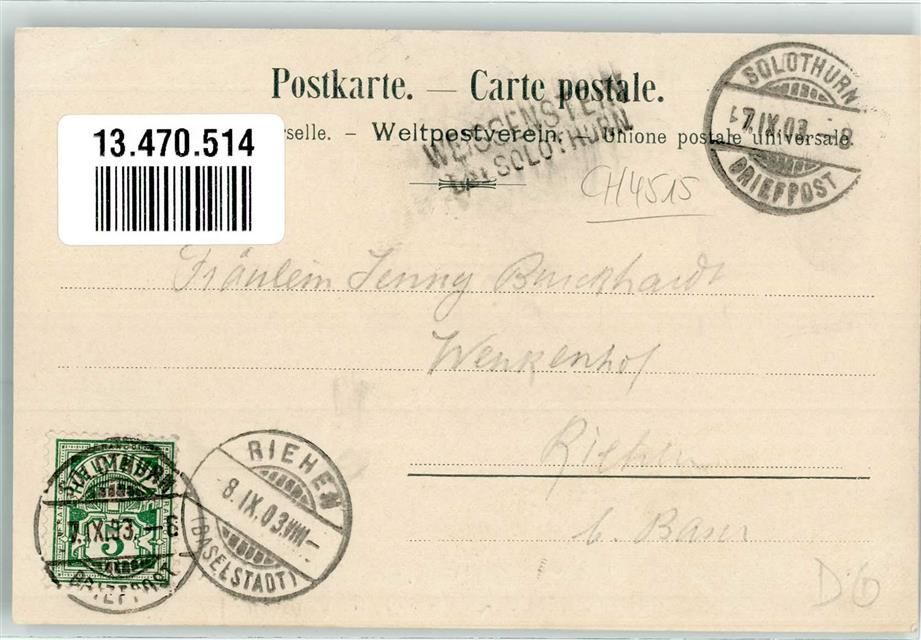 Postkarte. — Carte postale.
13.470.514
rselle. – Weltpostverein. – Unione postale universale.
WEISSENSTEIN
BEI SOLOTHURN
SOLOTHURN
7.IX.03.–8
BRIEFPOST
CH4515
Fräulein Jenny Burckhardt
Wenkenhof
Riehen
b. Basel
SOLOTHURN
7.IX.03.–8
BRIEFPOST
5
RIEHEN
8.IX.03.VIII–
(BASELSTADT)
D6